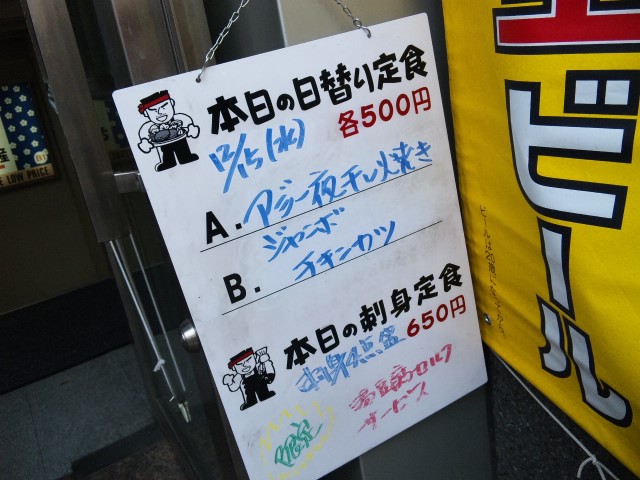 本日の日替り定食
12/15(水) 各500円
A. アジ一夜干し火焼き
ジャンボ
B. チキンカツ
本日の刺身定食
650円
限定
サービス
生ビール
LOW PRICE